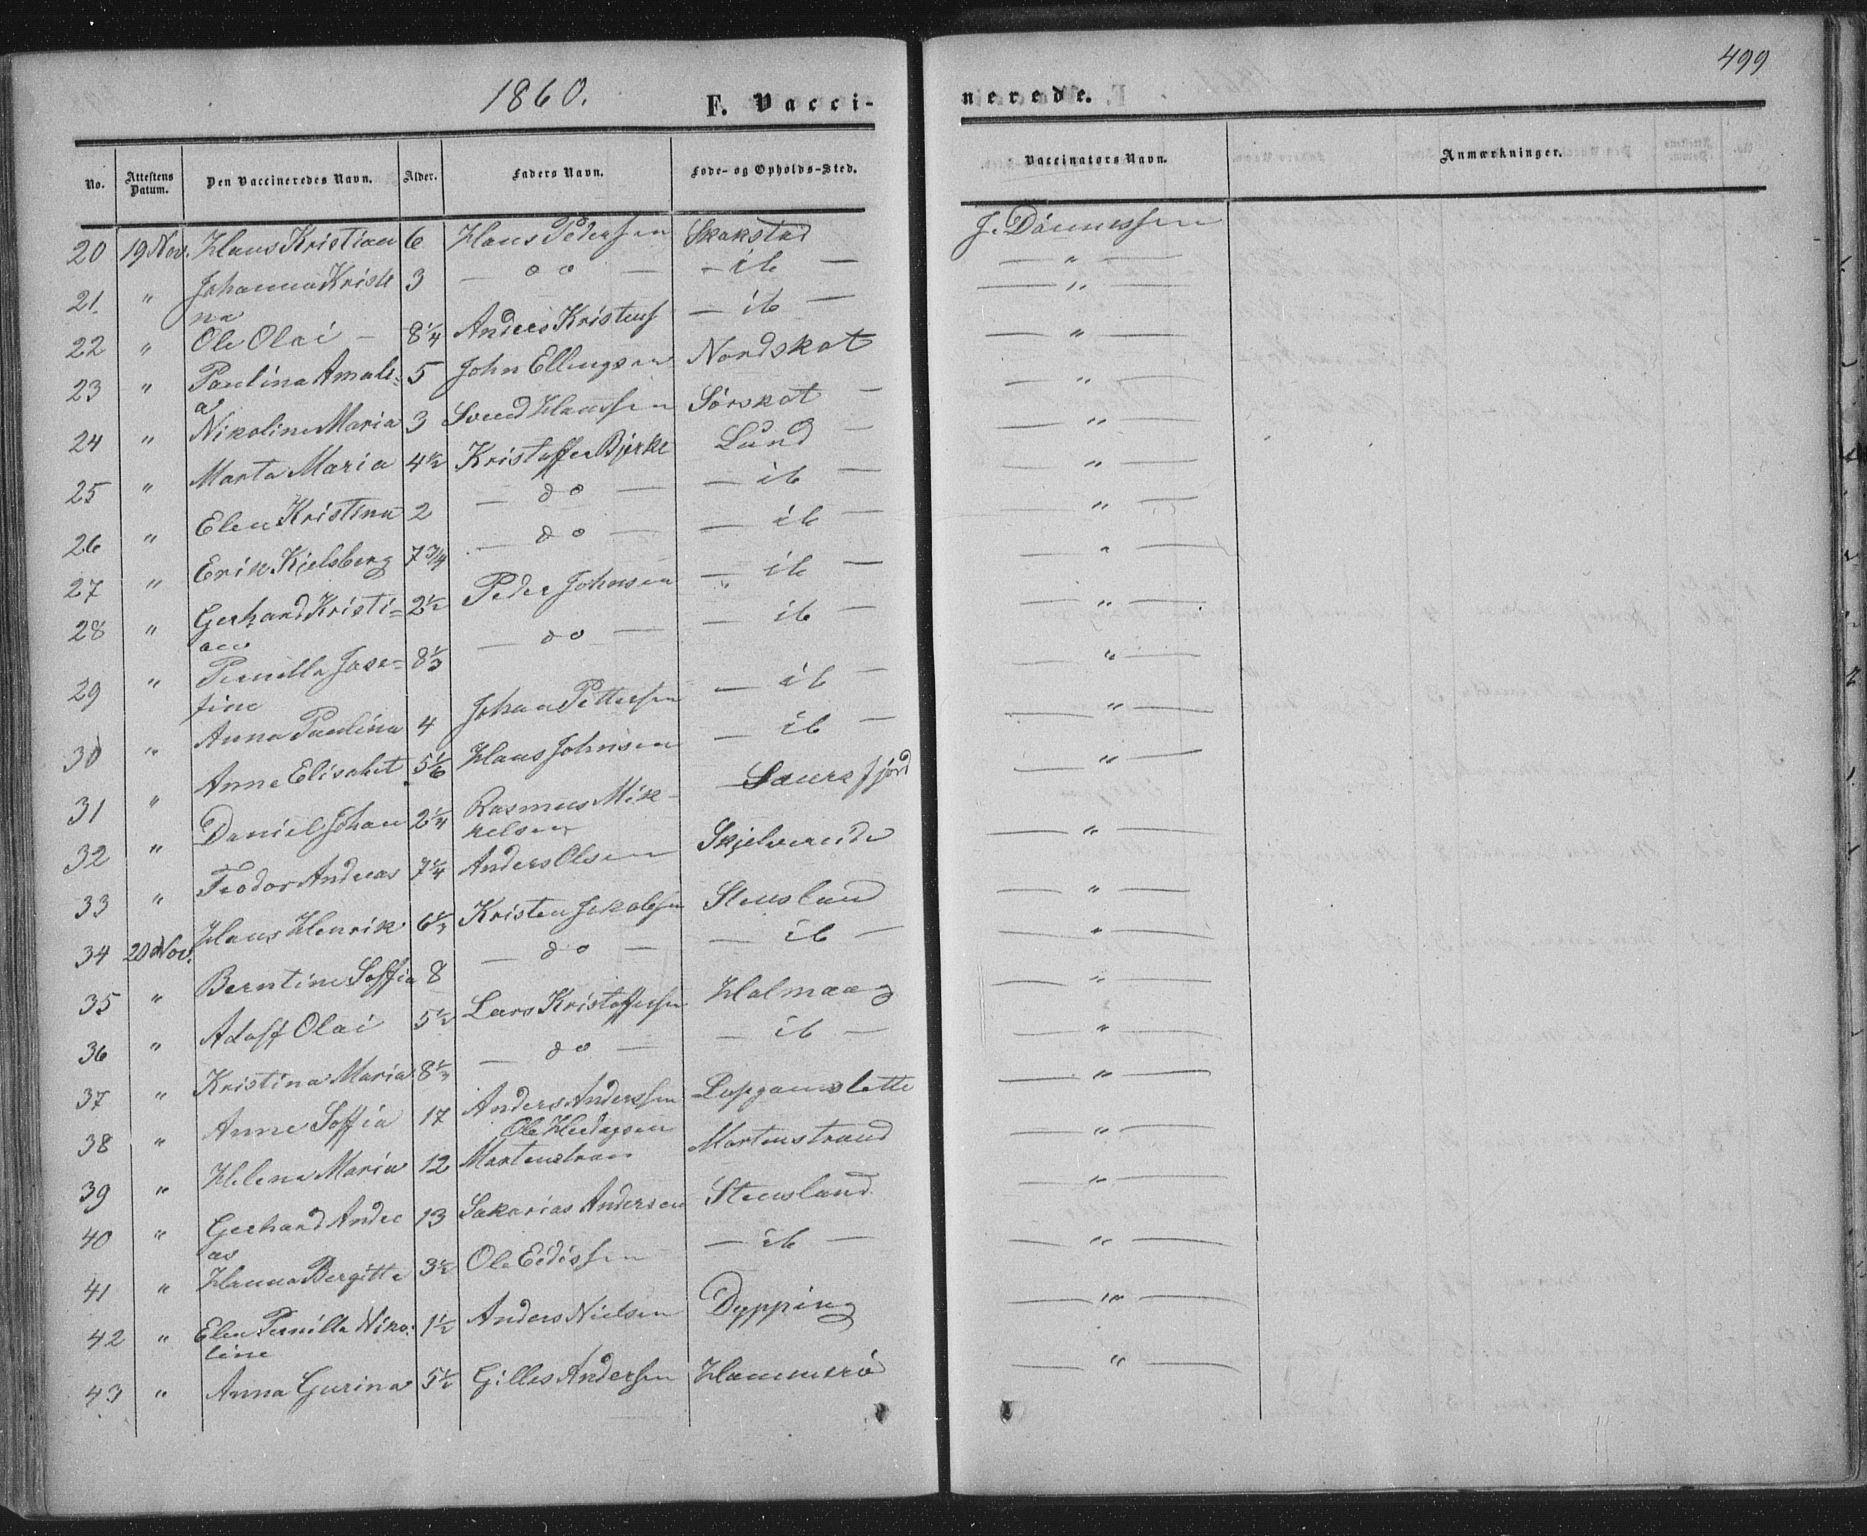 499
1860.
F. Vaccinerede.
No. Attestens Datum. Den Vaccineredes Navn. Alder. Faders Navn. Føde- og Opholds-Sted. Vaccinators Navn. Anmærkninger.
20 19 Nov. Hans Kristian 6 Hans Pedersen Skakstad J. Dönnessen
21. " Johanna Kristina 3 — do — — ib — — " —
22 " Ole Olai — 8 1/4 Anders Kristens — ib — — " —
23 " Paulina Amalia 5 John Ellingsen Nordskot — " —
24 " Nikoline Maria 3 Svend Hanssen Sörskot — — " —
25 " Marta Maria 4 1/2 Kristoffer Bjerke Lund — — " —
26 " Elen Kristina 2 — do — — ib — — " —
27 " Erik Kjelsberg 7 3/4 — do — — ib — — " —
28 " Gerhard Kristian 2 1/2 Peder Johnsen — ib — — " —
29 " Pernilla Josefine 8 1/3 — do — — ib — — " —
30 " Anna Paulina 4 Johan Pettersen — ib — — " —
31 " Anne Elisabet 5 1/6 Hans Johnsen — ib — — " —
32 " Daniel Johan 2 1/4 Rasmus Mikkelsen Saursfjord — " —
33 " Teodor Andreas 7 1/4 Anders Olsen Skjelvereide — " —
34 20 Nov. Hans Henrik 6 1/3 Kristen Jakobsen Stensland — " —
35 " Berntine Soffia 8 — do — — ib — — " —
36 " Adolf Olai 5 1/2 Lars Kristoffersen Holmaag — " —
37 " Kristina Maria 8 1/3 — do — — ib — — " —
38 " Anne Soffia 17 Anders Anderssen — " —
39 " Helena Maria 12 Ole Martenstran Martenstrand — " —
40 " Gerhard Andreas 13 Sakarias Andersen Stensland — " —
41 " Hanna Bergitte 3 1/2 Ole Eidissen — ib — — " —
42 " Elen Pernilla Nikoline 1 1/2 Anders Nielsen Dypping — " —
43 " Anna Gurina 5 1/2 Gilles Andersen Hammerö — " —